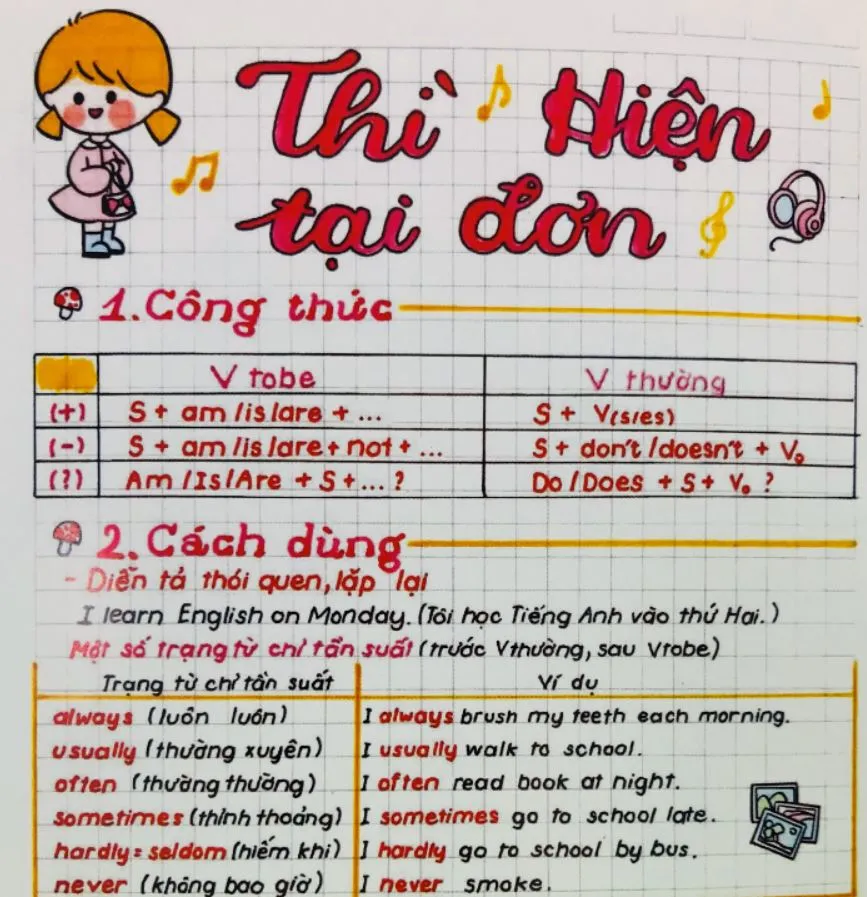 Thì Hiện
tại đơn
1. Công thức
V tobe V thường
(+) S + am/is/are + ... S + V(s/es)
(-) S + am/is/are + not + ... S + don't/doesn't + V₀
(?) Am/Is/Are + S + ... ? Do/Does + S + V₀ ?
2. Cách dùng
- Diễn tả thói quen, lặp lại
I learn English on Monday. (Tôi học Tiếng Anh vào thứ Hai.)
Một số trạng từ chỉ tần suất (trước Vthường, sau Vtobe)
Trạng từ chỉ tần suất Ví dụ
always (luôn luôn) I always brush my teeth each morning.
usually (thường xuyên) I usually walk to school.
often (thường thường) I often read book at night.
sometimes (thỉnh thoảng) I sometimes go to school late.
hardly = seldom (hiếm khi) I hardly go to school by bus.
never (không bao giờ) I never smoke.